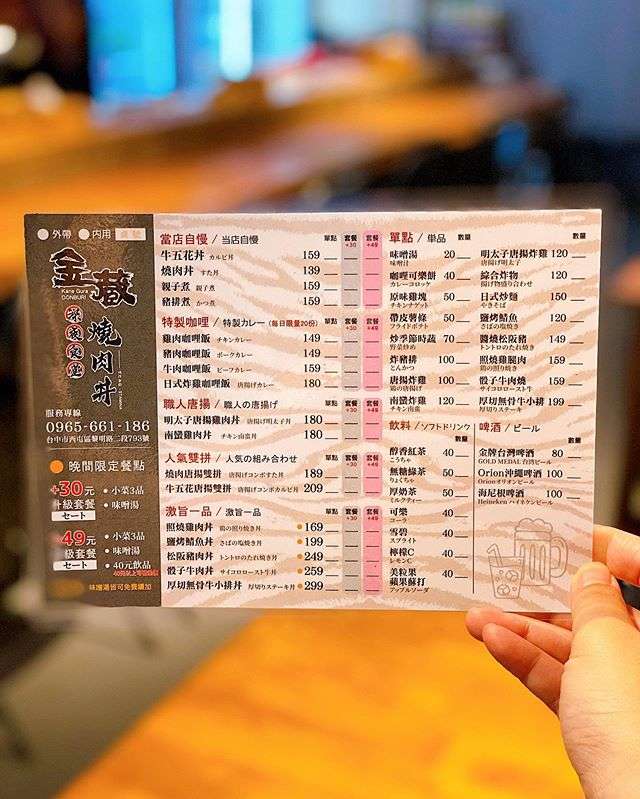 外帶 內用
金藏
Kane Gura
DONBURI
燒肉丼
服務專線
0965-661-186
台中市西屯區黎明路二段793號
晚間限定餐點
+30元 • 小菜3品
升級套餐 • 味噌湯
セート
+49元 • 小菜3品
級套餐 • 味噌湯
セート • 40元飲品
味噌湯皆可免費續加
當店自慢 / 当店自慢 單點 套餐+30 套餐+49
牛五花丼 カルビ丼 159
燒肉丼 すた丼 139
親子煮 親子煮 159
豬排煮 かつ煮 159
特製咖哩 / 特製カレー (每日限量20份) 單點 套餐+30 套餐+49
雞肉咖哩飯 チキンカレー 149
豬肉咖哩飯 ポークカレー 149
牛肉咖哩飯 ビーフカレー 159
日式炸雞咖哩飯 唐揚げカレー 180
職人唐揚 / 職人の唐揚げ 單點 套餐+30 套餐+49
明太子唐揚雞肉丼 唐揚げ明太子丼 180
南蠻雞肉丼 チキン南蛮丼 180
人氣雙拼 / 人気の組み合わせ 單點 套餐+30 套餐+49
燒肉唐揚雙拼 唐揚げコンボすた丼 189
牛五花唐揚雙拼 唐揚げコンボカルビ丼 209
激旨一品 / 激旨一品 單點 套餐+30 套餐+49
照燒雞肉丼 鶏の照り焼き丼 169
鹽烤鯖魚丼 さばの塩焼き丼 199
松阪豬肉丼 トントロのたれ焼き丼 249
骰子牛肉丼 サイコロロースト牛丼 259
厚切無骨牛小排丼 厚切りステーキ丼 299
單點 / 単品 數量
味噌湯 20
味噌湯
咖哩可樂餅 40
カレーコロッケ
原味雞塊 50
チキンナゲット
帶皮薯條 50
フライドポテト
炒季節時蔬 70
野菜炒め
炸豬排 100
とんかつ
唐揚炸雞 100
鶏の唐揚げ
南蠻炸雞 120
チキン南蛮
數量
明太子唐揚炸雞 120
唐揚げ明太子
綜合炸物 120
揚げ物盛り合わせ
日式炒麵 150
やきそば
鹽烤鯖魚 120
さばの塩焼き
醬燒松阪豬 150
トントロのたれ焼き
照燒雞腿肉 150
鶏の照り焼き
骰子牛肉燒 150
サイコロロースト牛
厚切無骨牛小排 199
厚切りステーキ
飲料 / ソフトドリンク 數量
醇香紅茶 40
こうちゃ
無糖綠茶 40
りょくちゃ
厚奶茶 50
ミルクティー
可樂 40
コーラ
雪碧 40
スプライト
檸檬C 40
レモンC
美粒果
蘋果蘇打 40
アップルソーダ
啤酒 / ビール 數量
金牌台灣啤酒 80
GOLD MEDAL 台湾ビール
Orion沖繩啤酒 100
Orion オリオンビール
海尼根啤酒 100
Heineken ハイネケンビール